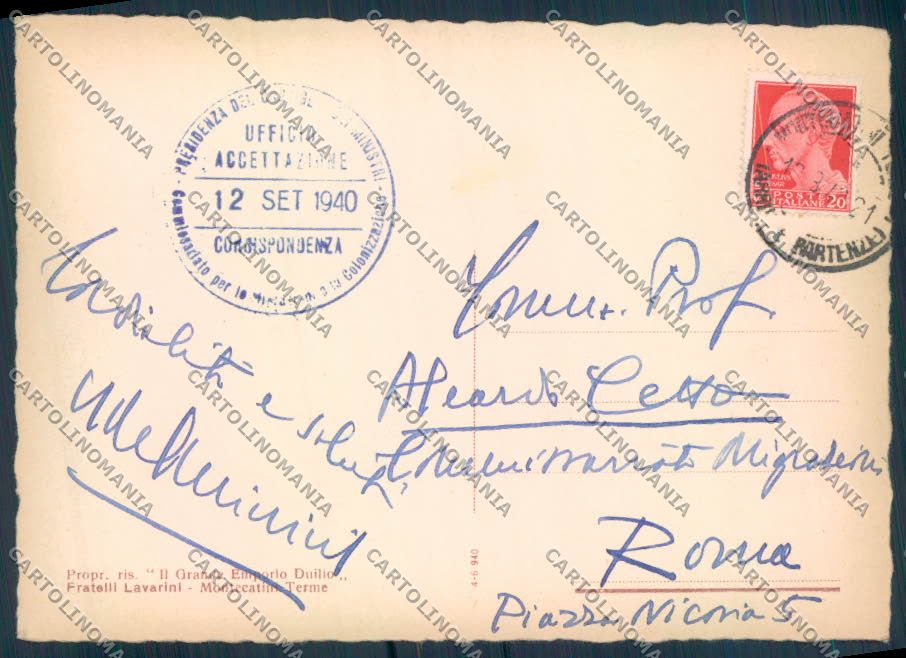 PRESIDENZA DEL CONSIGLIO DEI MINISTRI -
UFFICIO
ACCETTAZIONE
12 SET 1940
CORRISPONDENZA
Commissariato per le Migrazioni e la Colonizzazione
POSTE
ITALIANE 20
PARTENZE
Comm. Prof.
Aleardo Cetto
Commissariato Migrazioni
Roma
Piazza Nicosia 5
Cordialità e saluti
Propr. ris. "Il Grande Emporio Duilio"
Fratelli Lavarini - Montecatini Terme
4-6 940
CARTOLINOMANIA